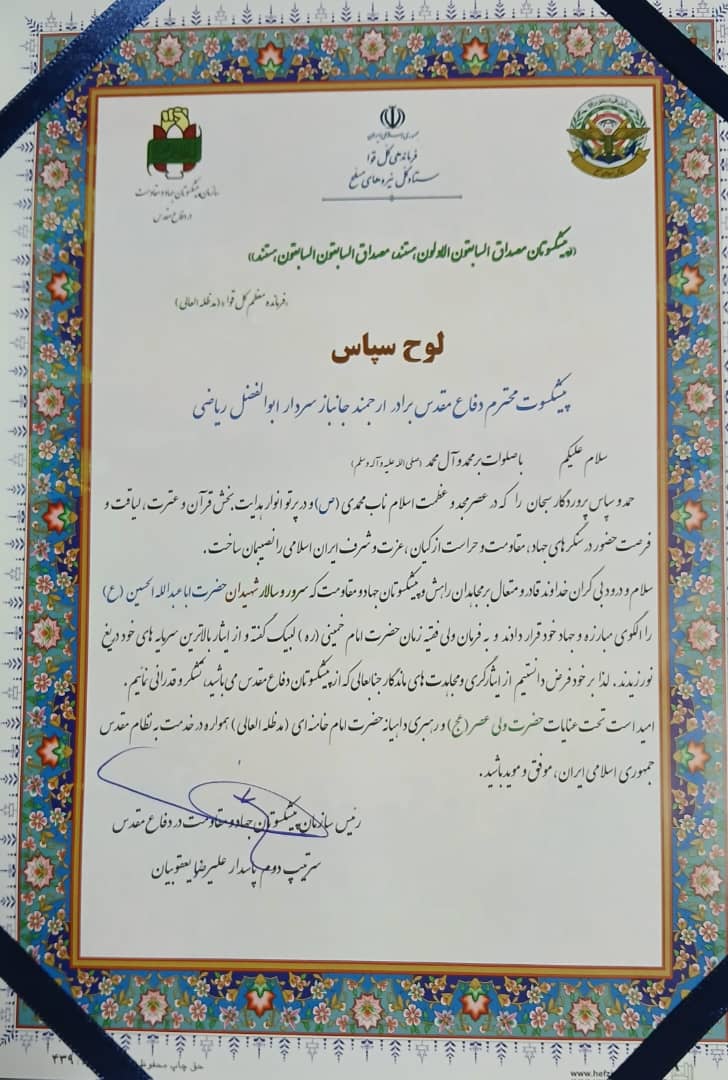 جمهوری اسلامی ایران
فرماندهی کل قوا
ستاد کل نیروهای مسلح
سازمان پیشکسوتان جهاد و مقاومت
در دفاع مقدس
«پیشکسوتان مصداق السابقون الاولون هستند، مصداق السابقون السابقون هستند»
«فرمانده معظم کل قوا» (مدظله العالی)
لوح سپاس
پیشکسوت محترم دفاع مقدس برادر ارجمند جانباز سردار ابوالفضل ریاضی
سلام علیکم با صلوات بر محمد و آل محمد (صلی الله علیه و آله و سلم)
حمد و سپاس پروردگار سبحان را که در عصر مجد و عظمت اسلام ناب محمدی (ص) و در پرتو انوار هدایت بخش قرآن و عترت، لیاقت و
فرصت حضور در سنگرهای جهاد، مقاومت و حراست از کیان، عزت و شرف ایران اسلامی را نصیبمان ساخت.
سلام و درود بی کران خداوند قادر و متعال بر مجاهدان راهش و پیشکسوتان جهاد و مقاومت که سرور و سالار شهیدان حضرت اباعبدالله الحسین (ع)
را الگوی مبارزه و جهاد خود قرار دادند و به فرمان ولی فقیه زمان حضرت امام خمینی (ره) لبیک گفته و از ایثار بالاترین سرمایه های خود دریغ
نورزیدند. لذا بر خود فرض دانستیم از ایثارگری و مجاهدت های ماندگار جنابعالی که از پیشکسوتان دفاع مقدس می باشید، تشکر و قدردانی نمائیم.
امید است تحت عنایات حضرت ولی عصر (عج) و رهبری داهیانه حضرت امام خامنه ای (مدظله العالی) همواره در خدمت به نظام مقدس
جمهوری اسلامی ایران، موفق و موید باشید.
رئیس سازمان پیشکسوتان جهاد و مقاومت در دفاع مقدس
سرتیپ دوم پاسدار علیرضا یعقوبیان
حق چاپ محفوظ
۴۳۹